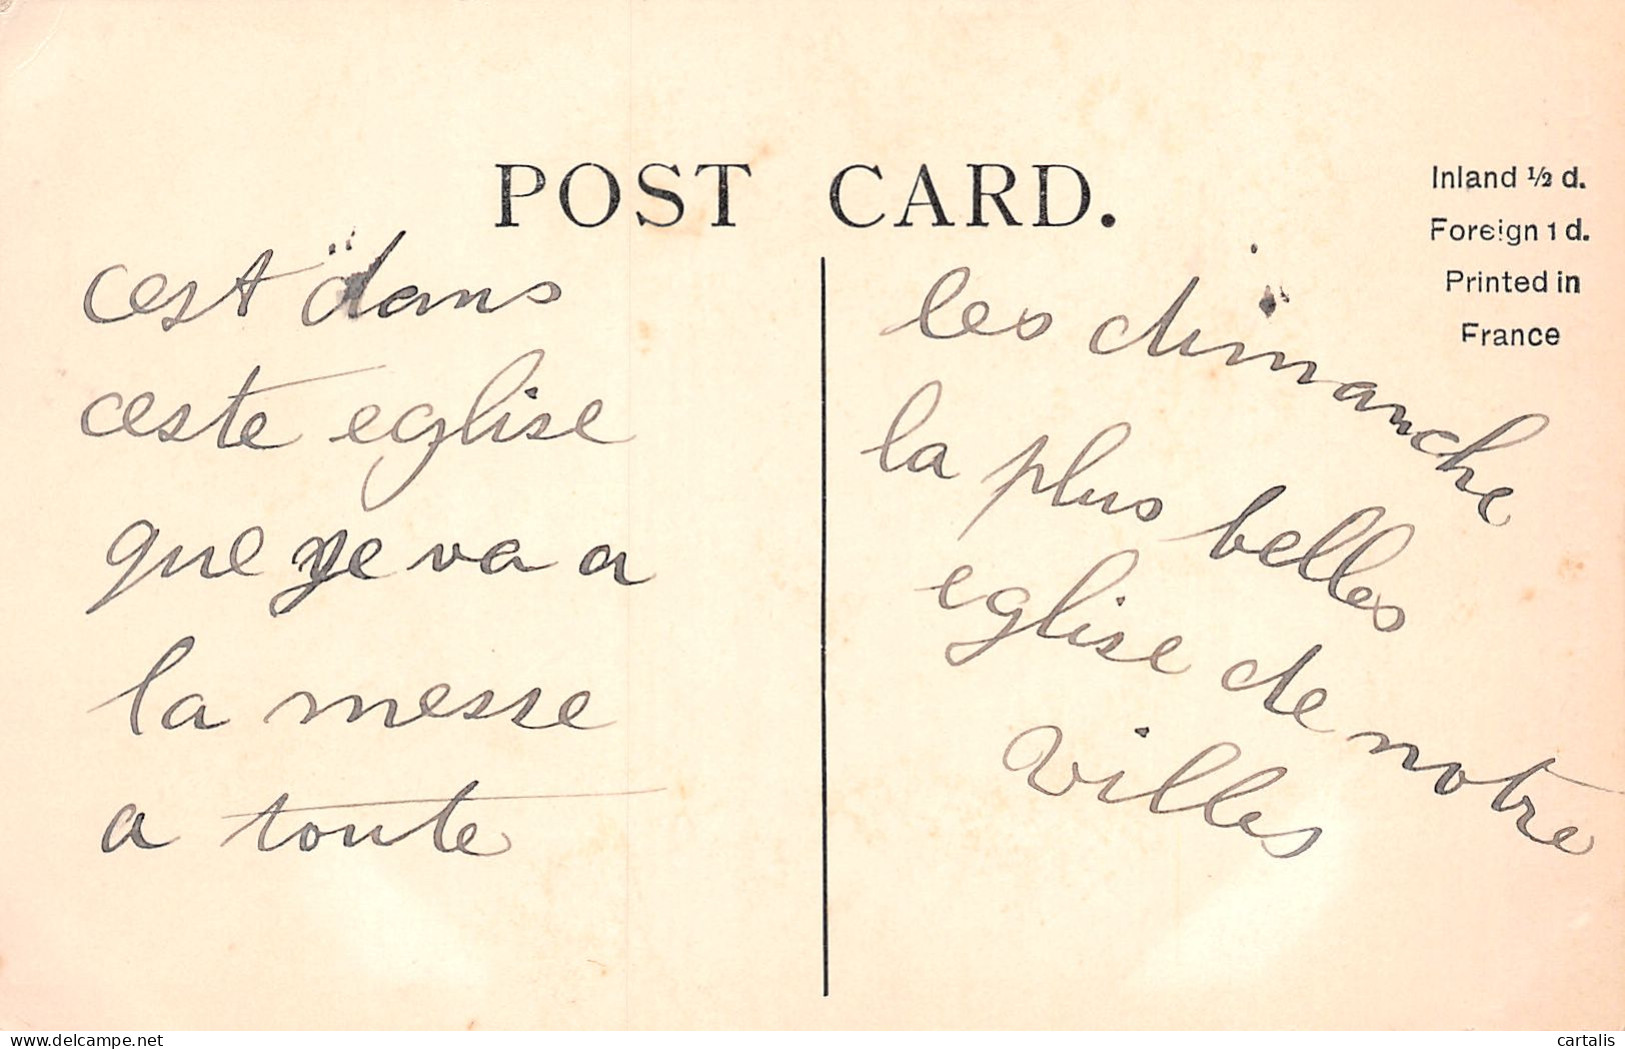 POST CARD.
Inland ½ d.
Foreign 1 d.
Printed in
France
cest dans
ceste eglise
que ye va a
la messe
a toute
les dimanche
la plus belles
eglise de notre
villes
delcampe.net
cartalis